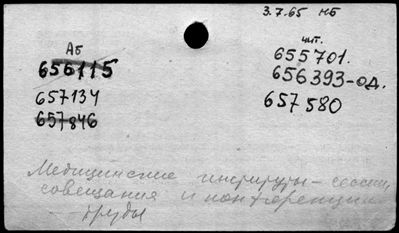 3.7.65 НБ
Аб
656115
657134
657846
чит.
655701.
656393-од.
657580
Медицинские институты - сессии,
совещания и конференции
труды